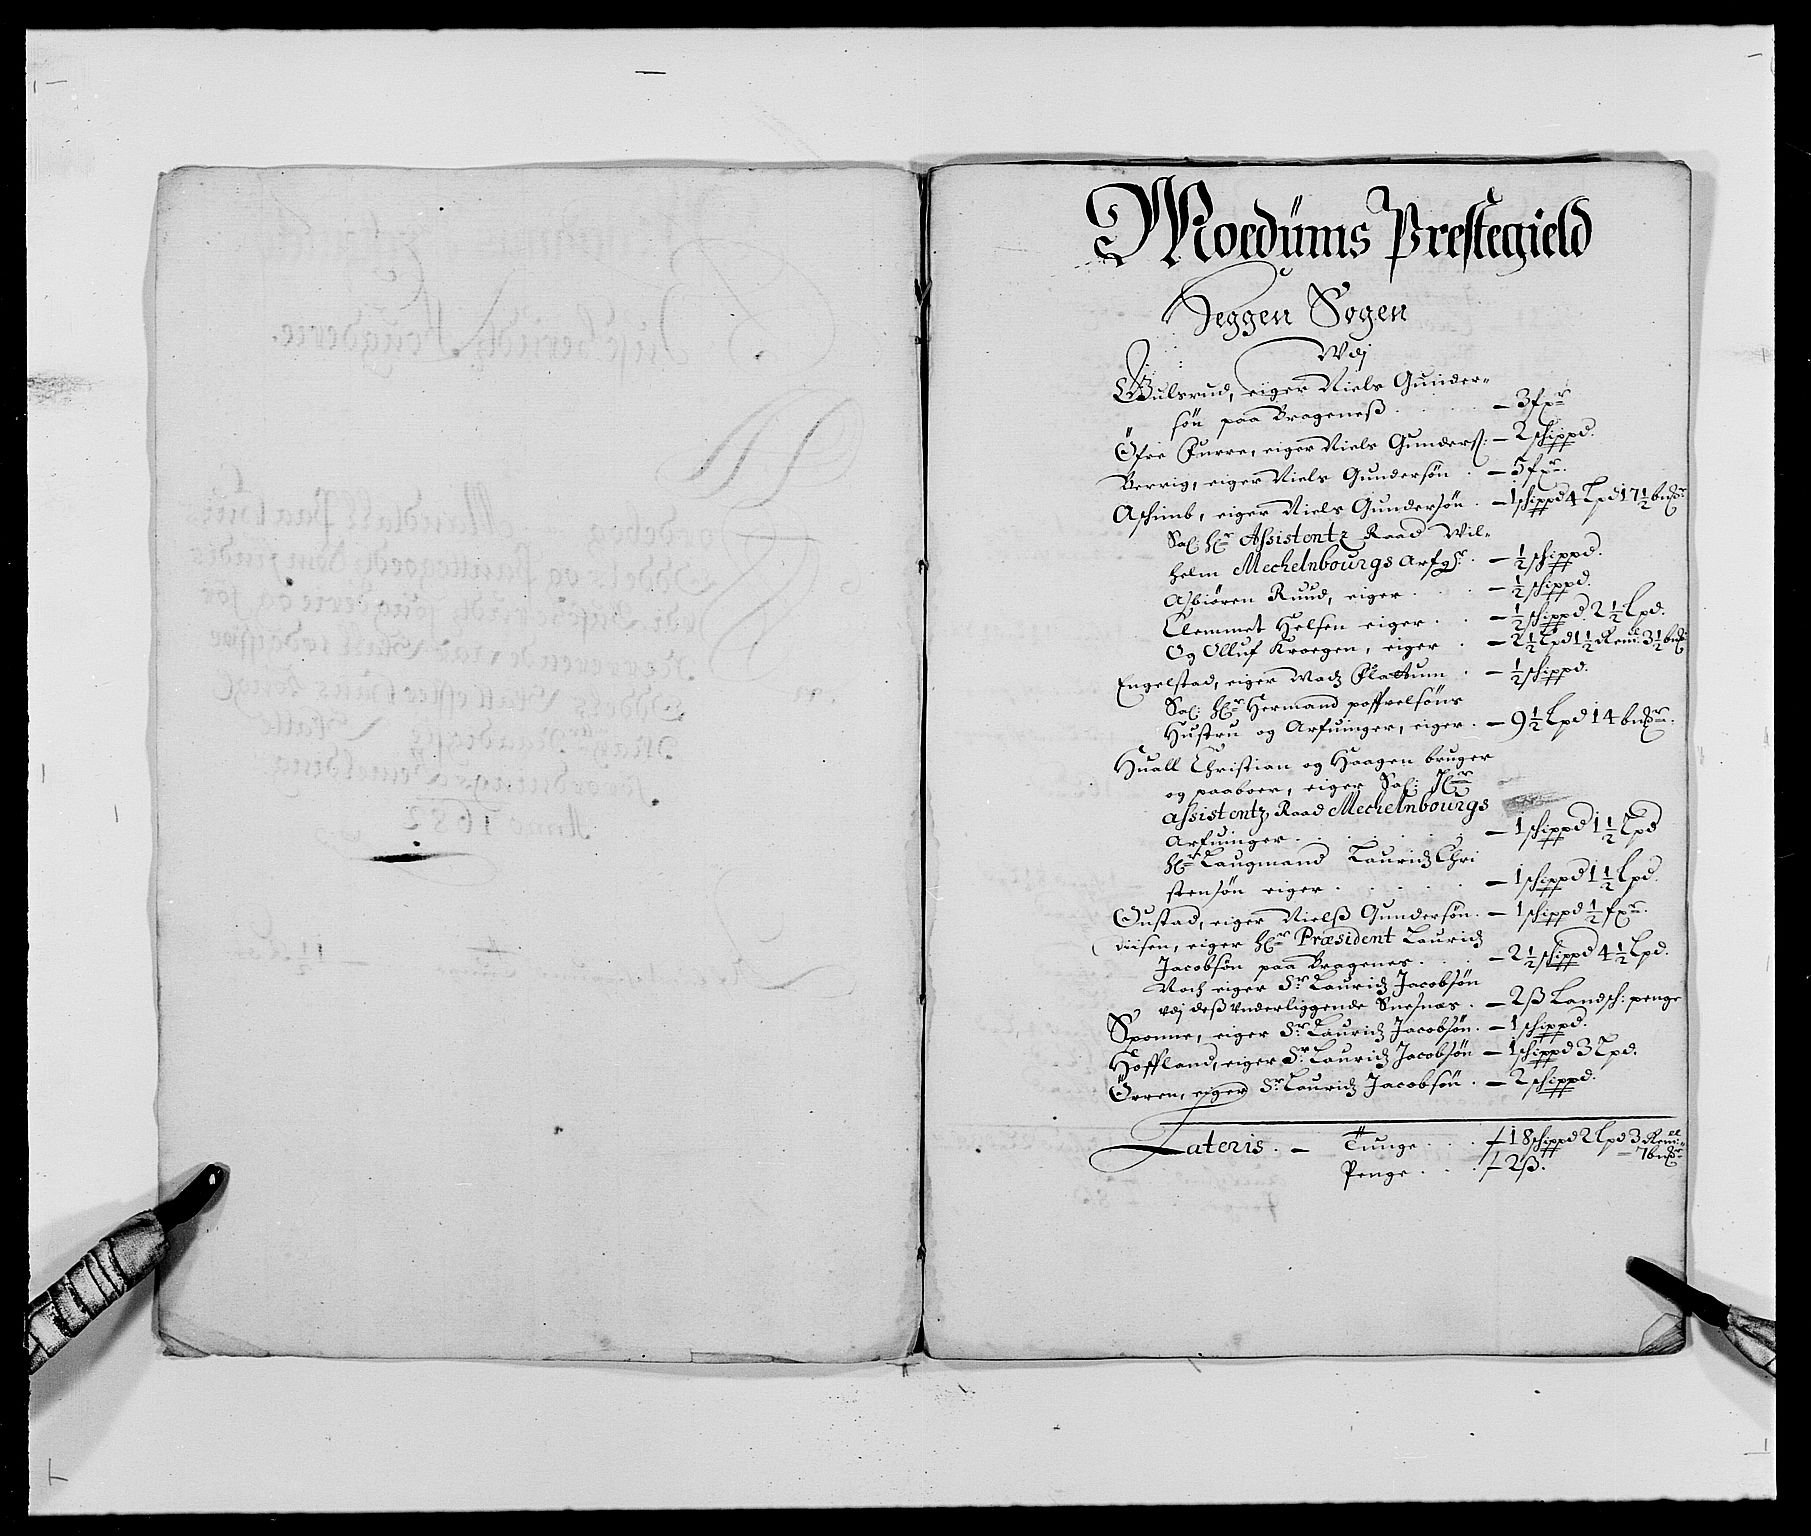 Moedums Prestegield
Heggen Sogen
Vdj
Gulsrud, eiger Niels Gunder-
søn paa Brageneß . . . – 3 fxr
Öfre Furre, eiger Niels Gunders: – 2 schippd.
Berrig, eiger Niels Gundersøn . – 5 fxr.
Aschimb, eiger Niels Gundersøn . – 1 schippd 4 Lpd 17½ bmrr
Sal: Hr Assistentz Raad Wil-
helm Mechelnbourgs Arfgr. – ½ schippd.
Asbiøren Ruud, eiger . . . – ½ schippd.
Clemmet Helsen eiger . . – ½ schippd. 2½ Lpd.
Og Olluf Kroegen, eiger . – 2½ Lpd 1½ Reml: 3½ bmr
Engelstad, eiger Madz Flattum . – ½ schippd.
Sal: Hr Hermand poffvelsøns
Hustru og Arfuinger, eiger . – 9½ Lpd 14 bmrr.
Huall Christian og Haagen bruger
og paaboer, eiger Sal: Hr
assistentz Raad Mechelnbourgs
Arfuinger . . . . . – 1 schippd 1½ Lpd
Hr Laugmand Lauridz Chri
stensøn eiger . . . . – 1 schippd 1½ Lpd.
Gustad, eiger Nielß Gundersøn . – 1 schippd ½ fxr.
Diisen, eiger Hr Præsident Lauridz
Jacobsøn paa Bragenes . . – 2½ schippd 4½ Lpd.
Noch eiger Sr Lauridz Jacobsøn
vdj deß vnderliggende Snesnæs . – 2 ß Landsch: penge
Sponne, eiger Sr. Lauridz Jacobsøn . – 1 schippd.
Hoffland, eiger Sr. Lauridz Jacobsøn – 1 schippd 3 Lpd.
Ørren, eiger Sr. Lauridz Jacobsøn . – 2 schippd.
Lateris . – Tunge . . . 18 schippd 2 Lpd 3 Reml:
– 7 bmr
Penge . . . 2 ß.